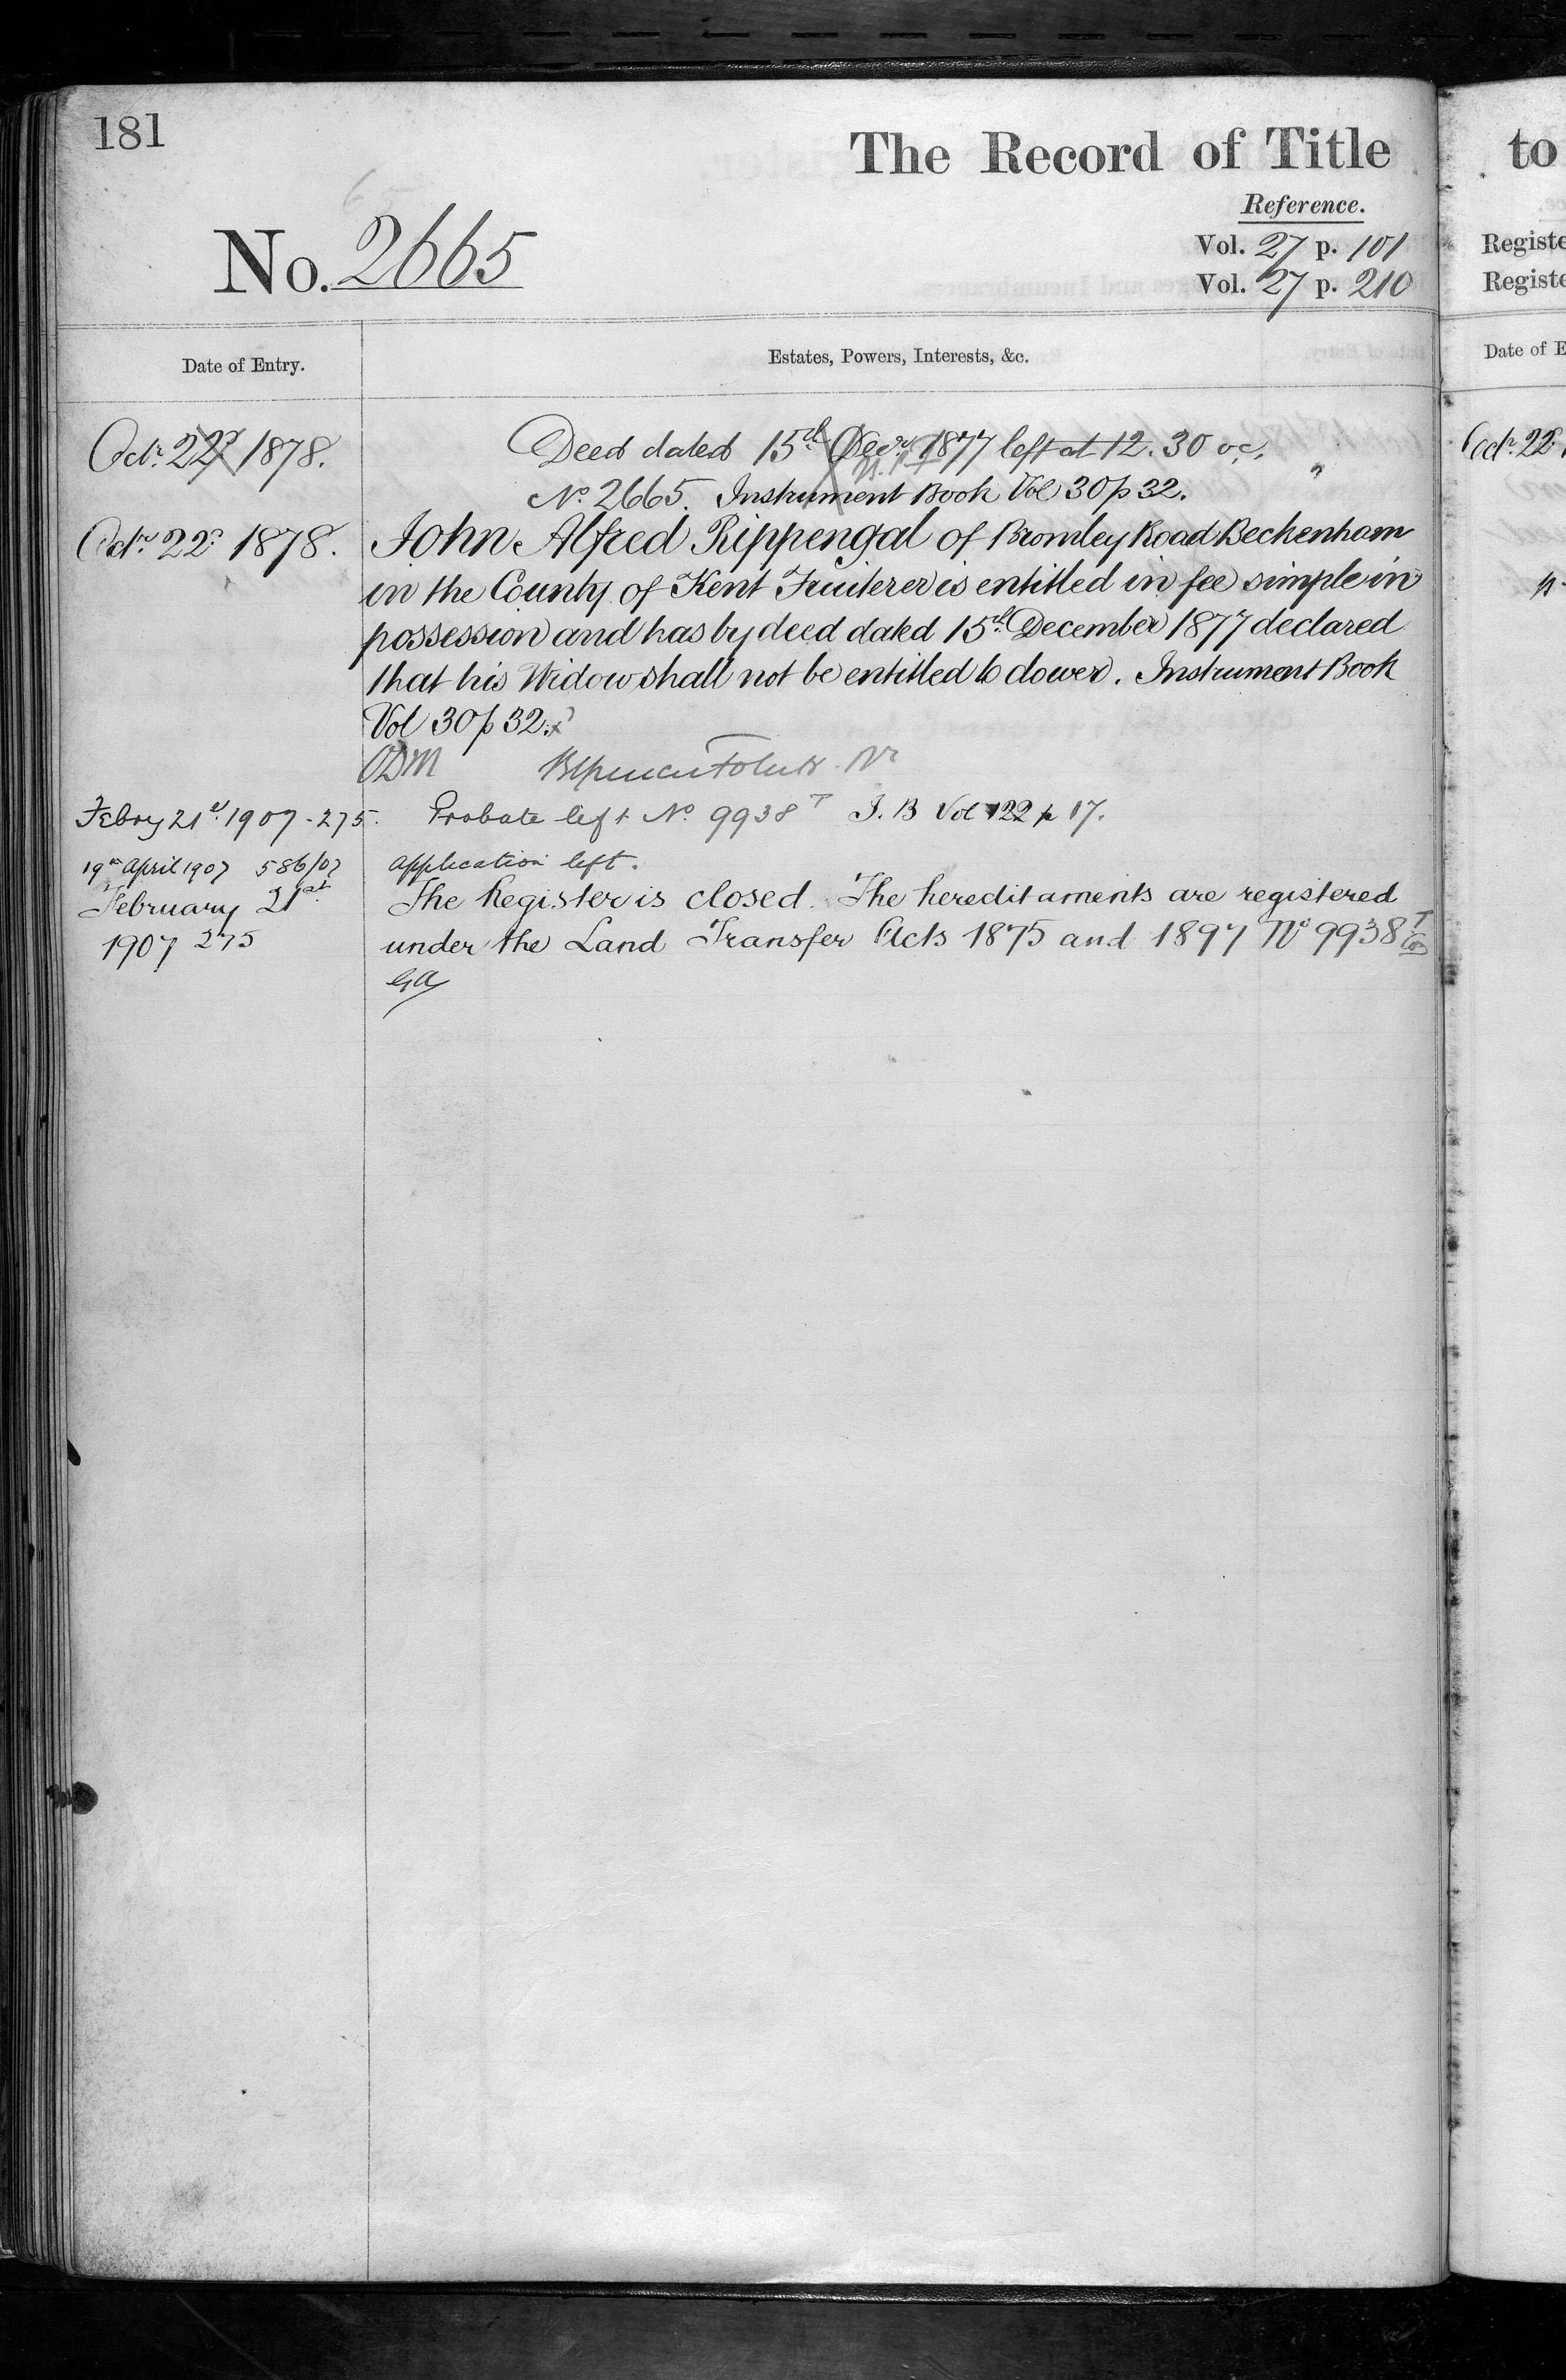 181
The Record of Title
Reference.
No. 2665
Vol. 27 p. 101
Vol. 27 p. 210
Date of Entry.
Estates, Powers, Interests, &c.
Octr. 22d 1878.
Deed dated 15th Decr. 1877 left at 12.30 oc.
No. 2665. Instrument Book Vol 30 p 32.
Octr. 22d 1878.
John Alfred Rippengal of Bromley Road Beckenham
in the County of Kent Fruiterer is entitled in fee simple in
possession and has by deed dated 15th December 1877 declared
that his Widow shall not be entitled to dower. Instrument Book
Vol 30 p 32.
ODM
Febry 21st 1907 - 275. Probate left No. 9938 T I. B Vol 122 p 17.
19th April 1907 586/07 application left.
February 21st
1907 275
The Register is closed. The hereditaments are registered
under the Land Transfer Acts 1875 and 1897 No 9938 T
GA
to
Registe
Registe
Date of E
Octr. 22d